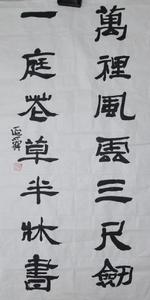 萬裡風雲三尺劍
一庭花草半牀書